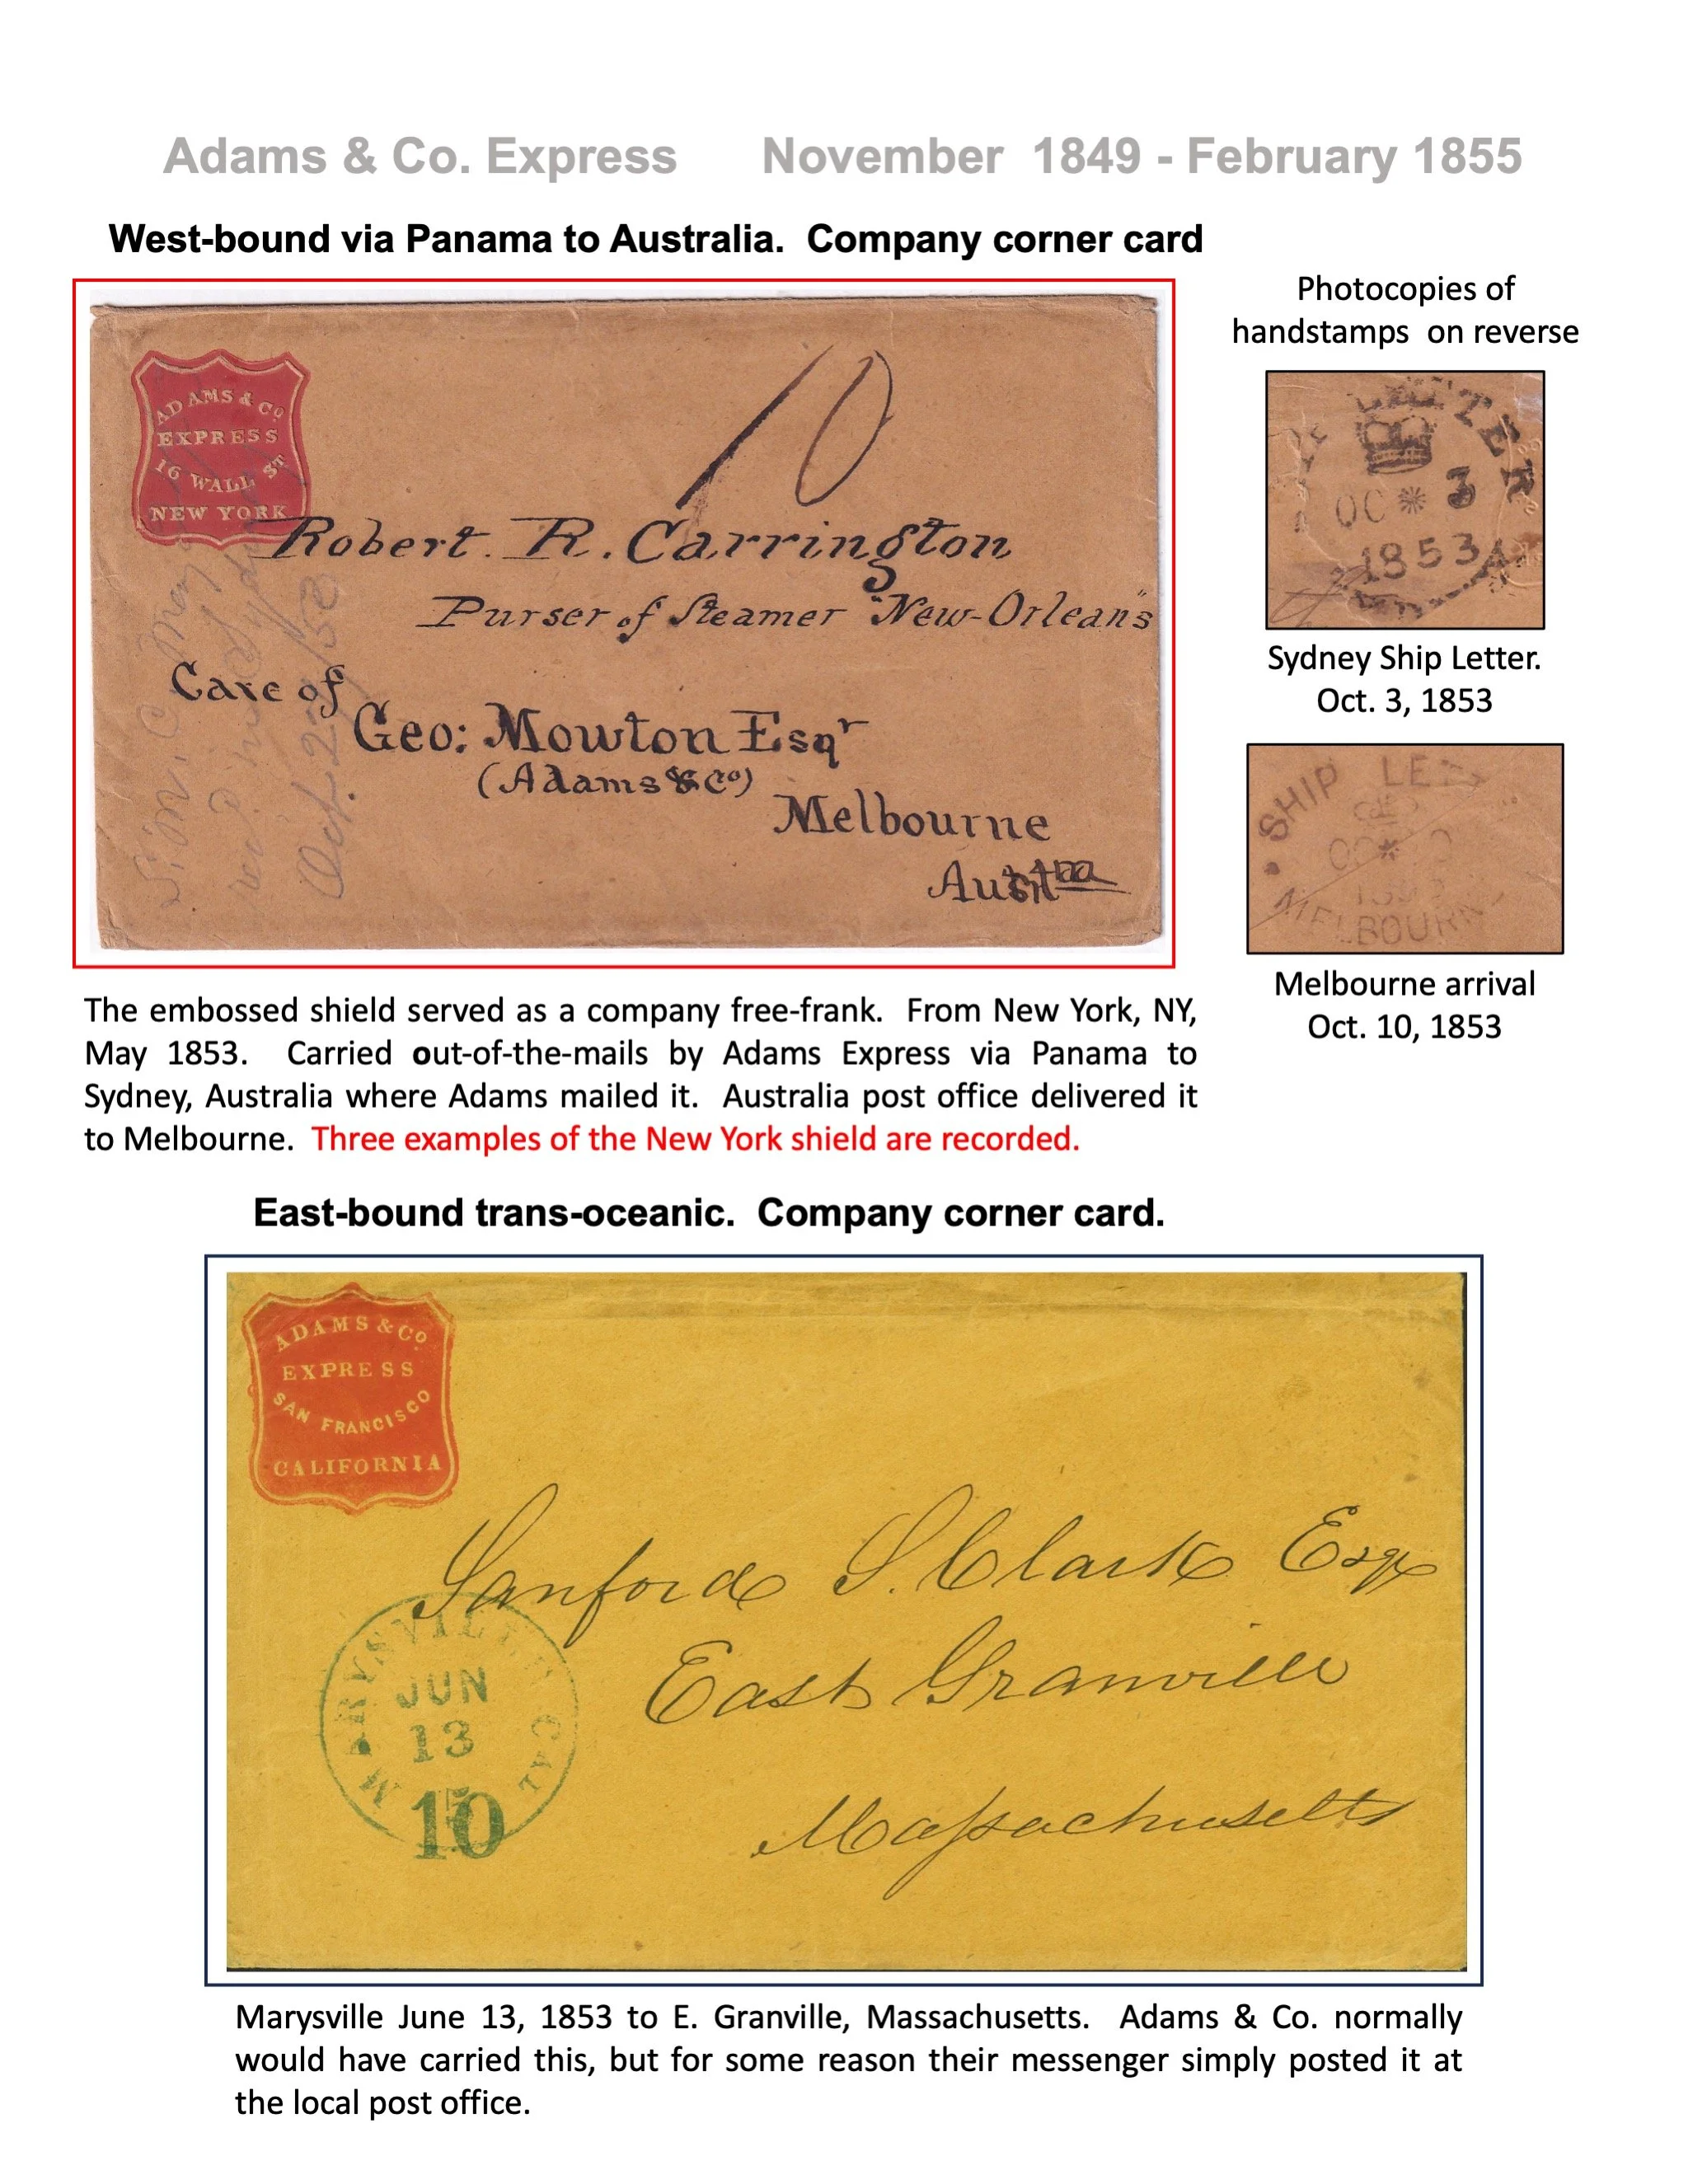 Adams & Co. Express November 1849 - February 1855
West-bound via Panama to Australia. Company corner card
ADAMS & Co
EXPRESS
16 WALL ST
NEW YORK
10
Robert. R. Carrington
Purser of Steamer "New-Orleans"
Care of
Geo: Mowton Esqr
(Adams & Co)
Melbourne
Photocopies of
handstamps on reverse
OC * 3
1853
Sydney Ship Letter.
Oct. 3, 1853
SHIP
MELBOURN
Melbourne arrival
Oct. 10, 1853
The embossed shield served as a company free-frank. From New York, NY,
May 1853. Carried out-of-the-mails by Adams Express via Panama to
Sydney, Australia where Adams mailed it. Australia post office delivered it
to Melbourne. Three examples of the New York shield are recorded.
East-bound trans-oceanic. Company corner card.
ADAMS & Co.
EXPRESS
SAN FRANCISCO
CALIFORNIA
Sanford S. Clark Esqr
East Granville
Massachusetts
MARYSVILLE CAL
JUN
13
10
Marysville June 13, 1853 to E. Granville, Massachusetts. Adams & Co. normally
would have carried this, but for some reason their messenger simply posted it at
the local post office.